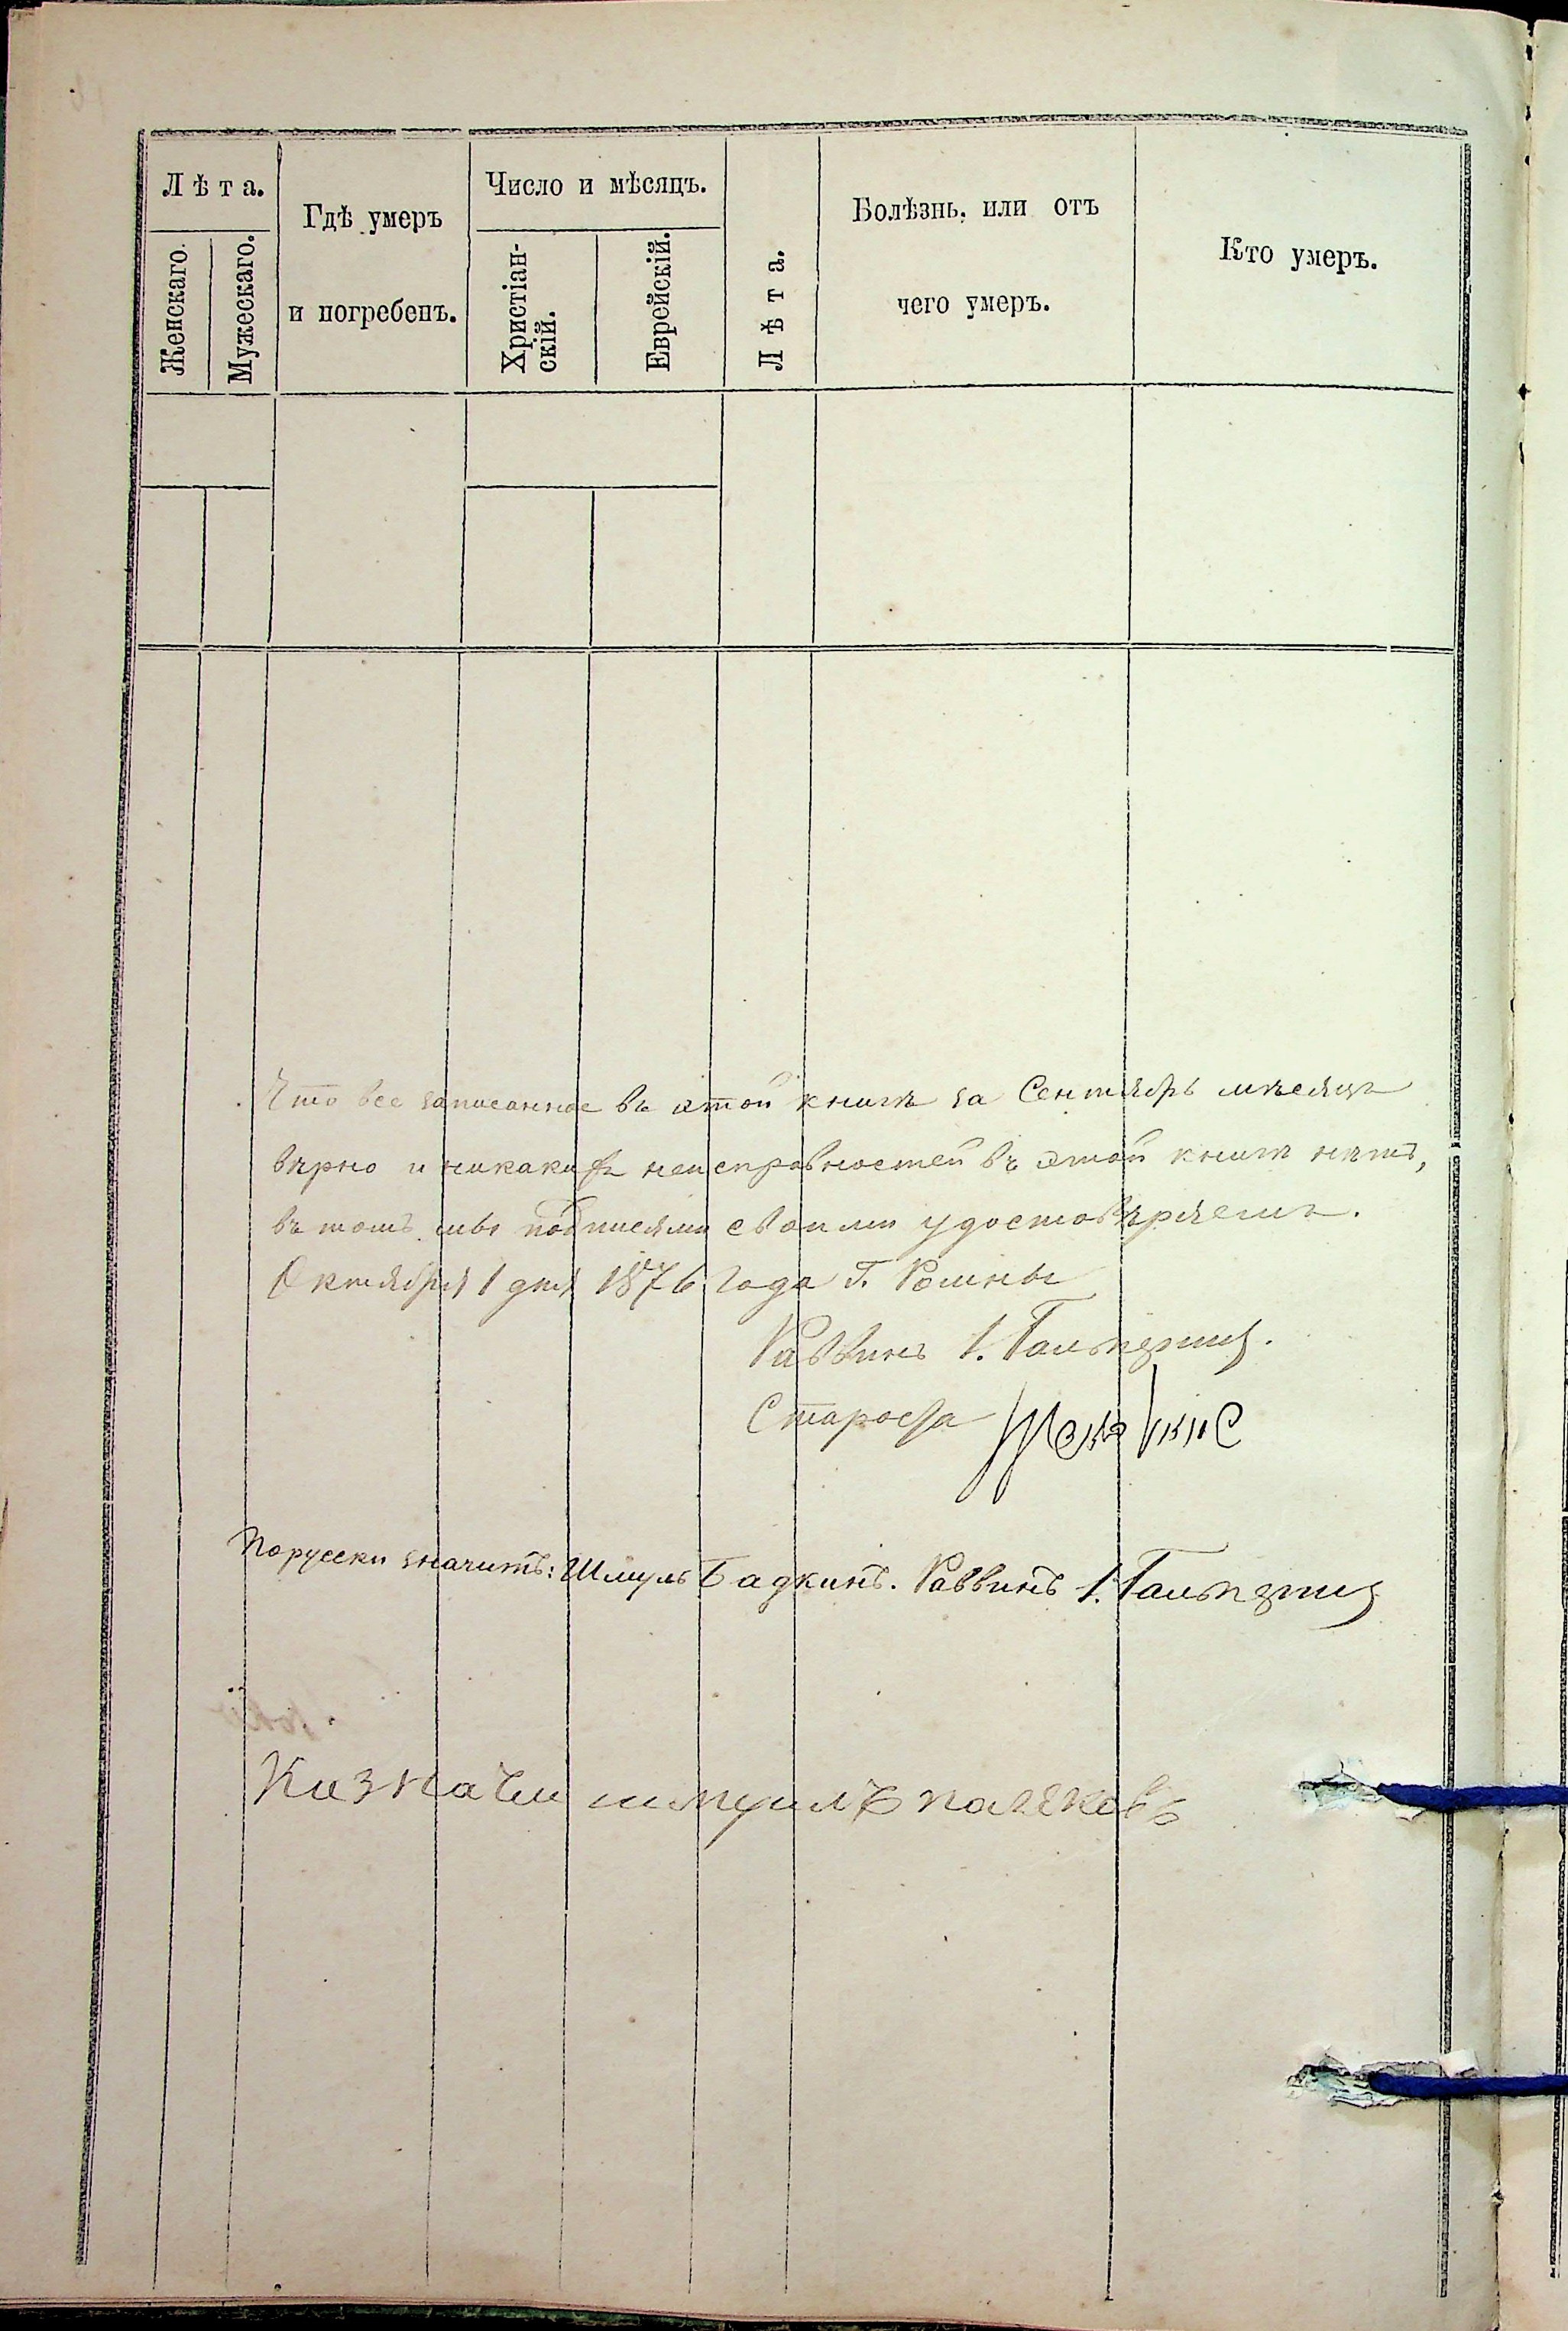 Лѣта.
Женскаго.
Мужескаго.
Гдѣ умеръ
и погребенъ.
Число и мѣсяцъ.
Христіан-
скій.
Еврейскій.
Лѣта.
Болѣзнь, или отъ
чего умеръ.
Кто умеръ.
Что все записанное въ этой книгѣ за Сентябрь мѣсяцъ
вѣрно и никакихъ неисправностей въ этой книгѣ нѣтъ,
въ томъ мы подписями своими удостовѣряемъ.
Октября 1 дня 1876 года Г. Ромны
Раввинъ I. Гальпернъ.
Староста
Порусски значитъ: Шмуль Бадкинъ. Раввинъ I. Гальпернъ
Казначи шмуилъ поляковъ